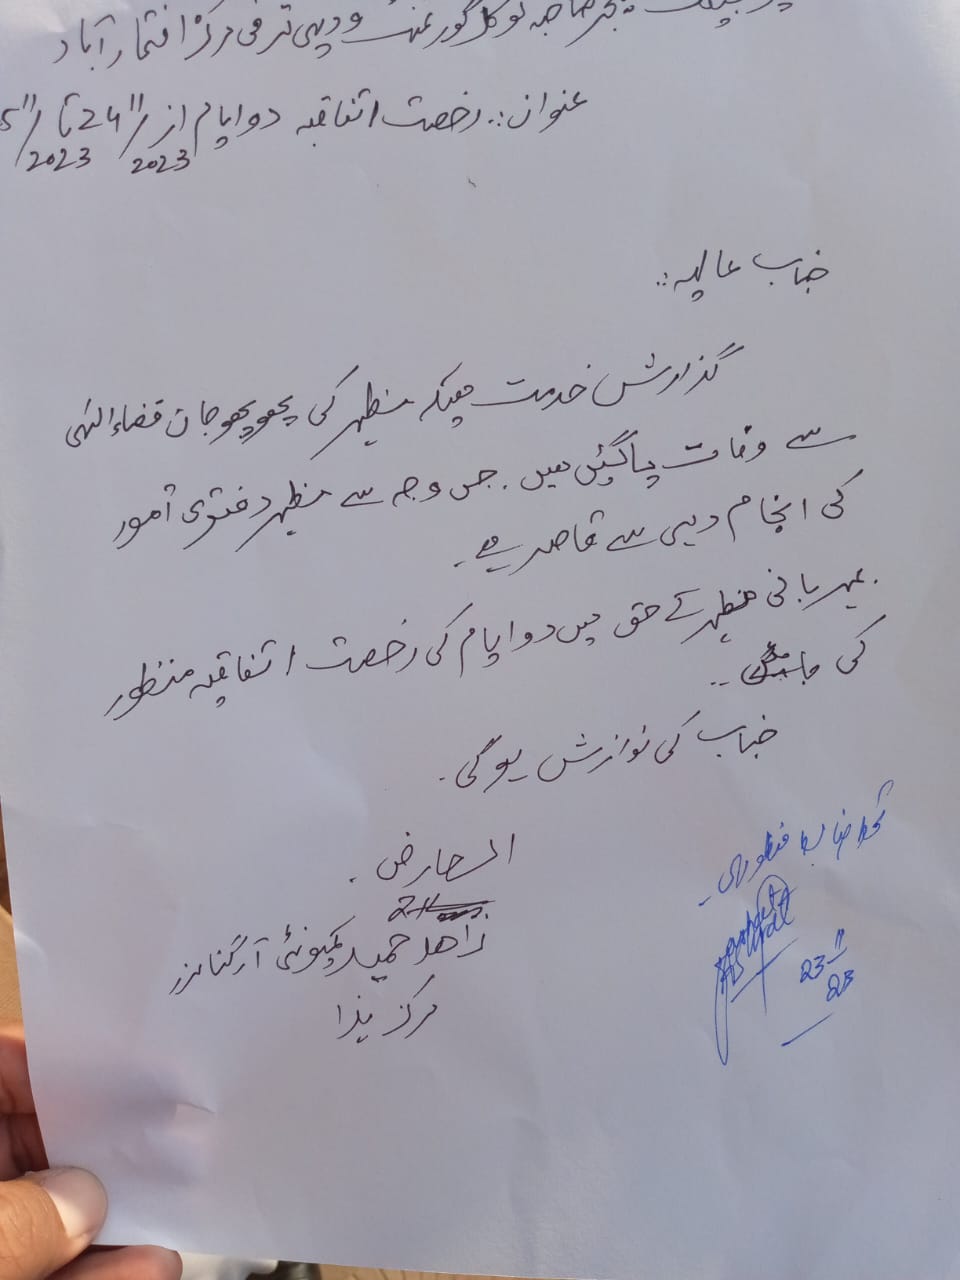 صاحبہ لوکل گورنمنٹ و دیہی ترقی مرکز افتخار آباد
عنوان:. رخصت اتفاقیہ دو ایام از 24/11/2023 تا 5/11/2023
جناب عالیہ:.
گذارش خدمت ہیکہ مظہر کی پھوپھو جان قضاء الہٰی
سے وفات پاگئیں ہیں. جس وجہ سے مظہر دفتری امور
کی انجام دہی سے قاصر ہے۔
مہربانی مظہر کے حق میں دو ایام کی رخصت اتفاقیہ منظور
کی جائے..
جناب کی نوازش ہوگی.
العارض.
زاھد حمید کمیونٹی آرگنائزر
مرکز ہذا
منظوری
23/11/23